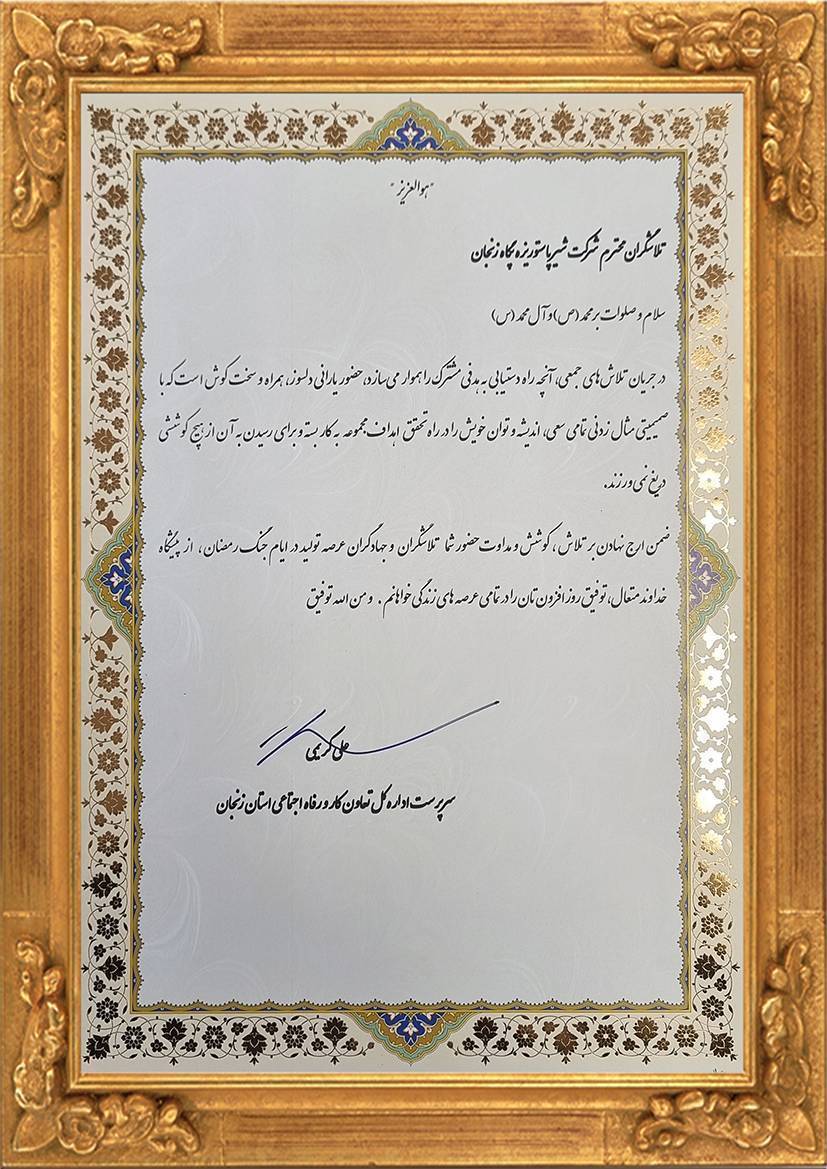 "هوالعزیز"
تلاشگران محترم شرکت شیر پاستوریزه پگاه زنجان
سلام و صلوات بر محمد (ص) و آل محمد (س)
در جریان تلاش های جمعی، آنچه راه دستیابی به هدفی مشترک را هموار می سازد، حضور یارانی دلسوز، همراه و سخت کوش است که با
صمیمیتی مثال زدنی تمامی سعی، اندیشه و توان خویش را در راه تحقق اهداف مجموعه به کار بسته و برای رسیدن به آن از هیچ کوششی
دریغ نمی ورزند.
ضمن ارج نهادن بر تلاش، کوشش و مداوت حضور شما تلاشگران و جهادگران عرصه تولید در ایام جنگ رمضان، از پیشگاه
خداوند متعال، توفیق روز افزون تان را در تمامی عرصه های زندگی خواهانم. و من الله توفیق
علی کریمی
سرپرست اداره کل تعاون کار و رفاه اجتماعی استان زنجان